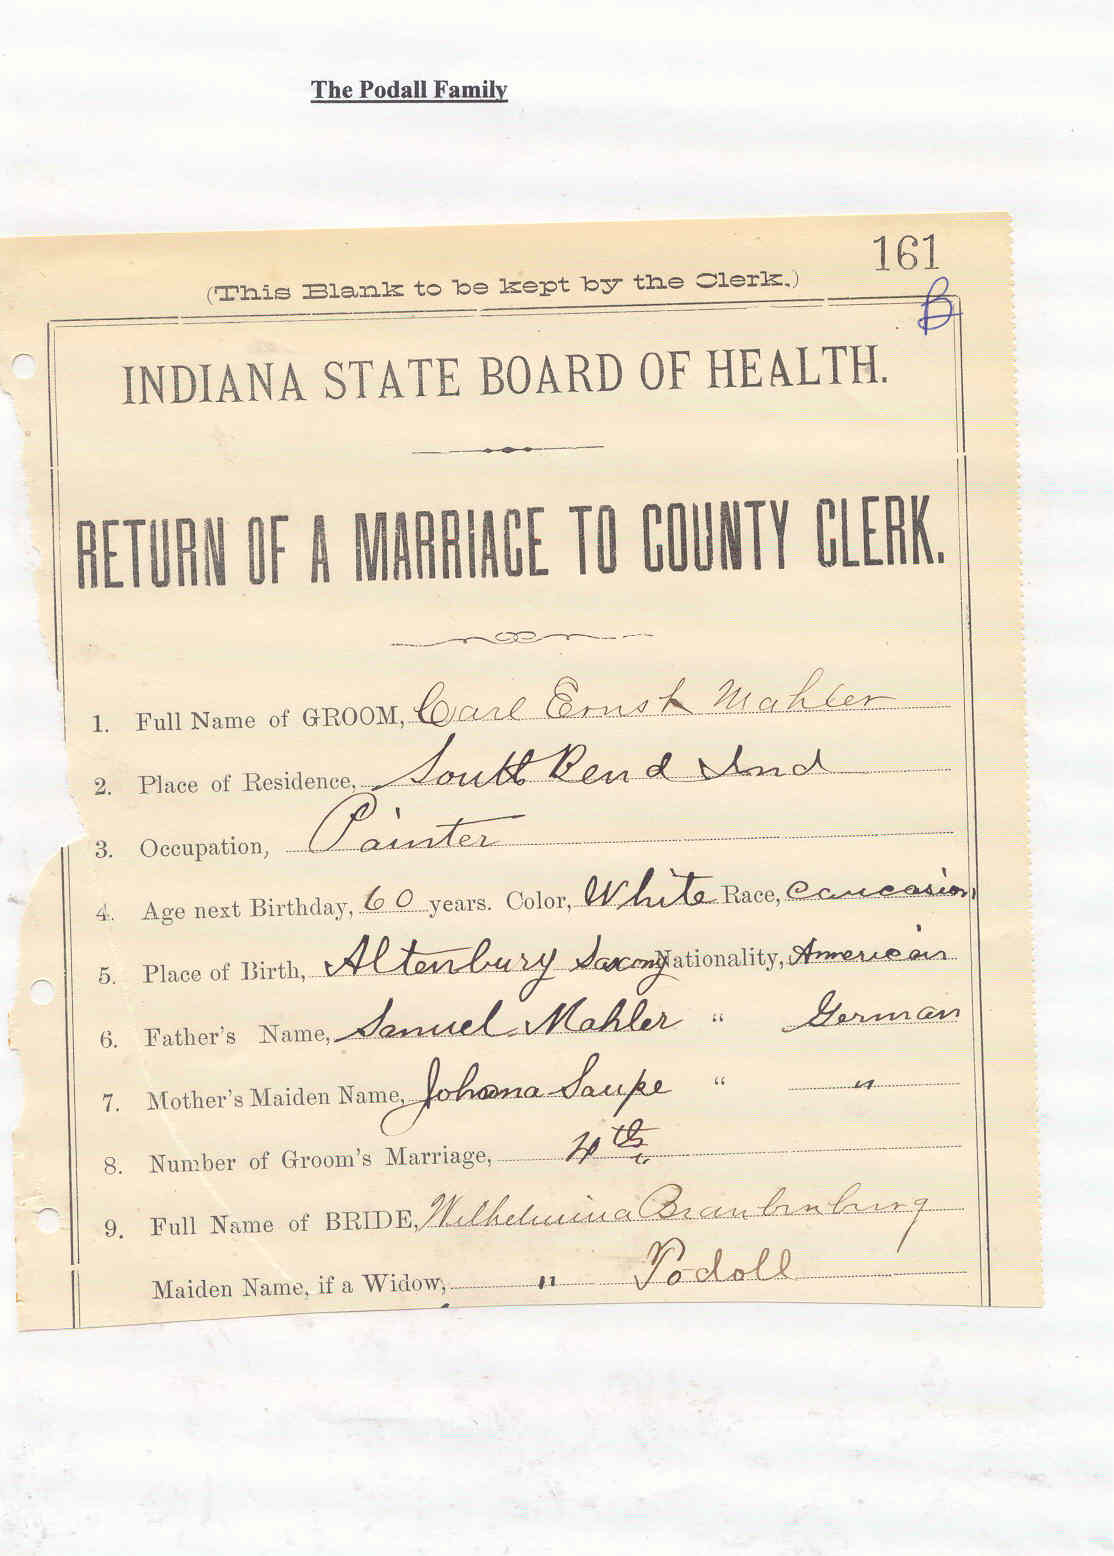 The Podall Family
161
(This Blank to be kept by the Clerk.)
B
INDIANA STATE BOARD OF HEALTH.
RETURN OF A MARRIAGE TO COUNTY CLERK.
1. Full Name of GROOM, Carl Ernst Mahler
2. Place of Residence, South Bend Ind
3. Occupation, Painter
4. Age next Birthday, 60 years. Color, White Race, Caucasion
5. Place of Birth, Altenbury Saxony Nationality, American
6. Father's Name, Samuel Mahler " German
7. Mother's Maiden Name, Johana Saupe " "
8. Number of Groom's Marriage, 4th
9. Full Name of BRIDE, Wilhelmina
Maiden Name, if a Widow, " Podoll